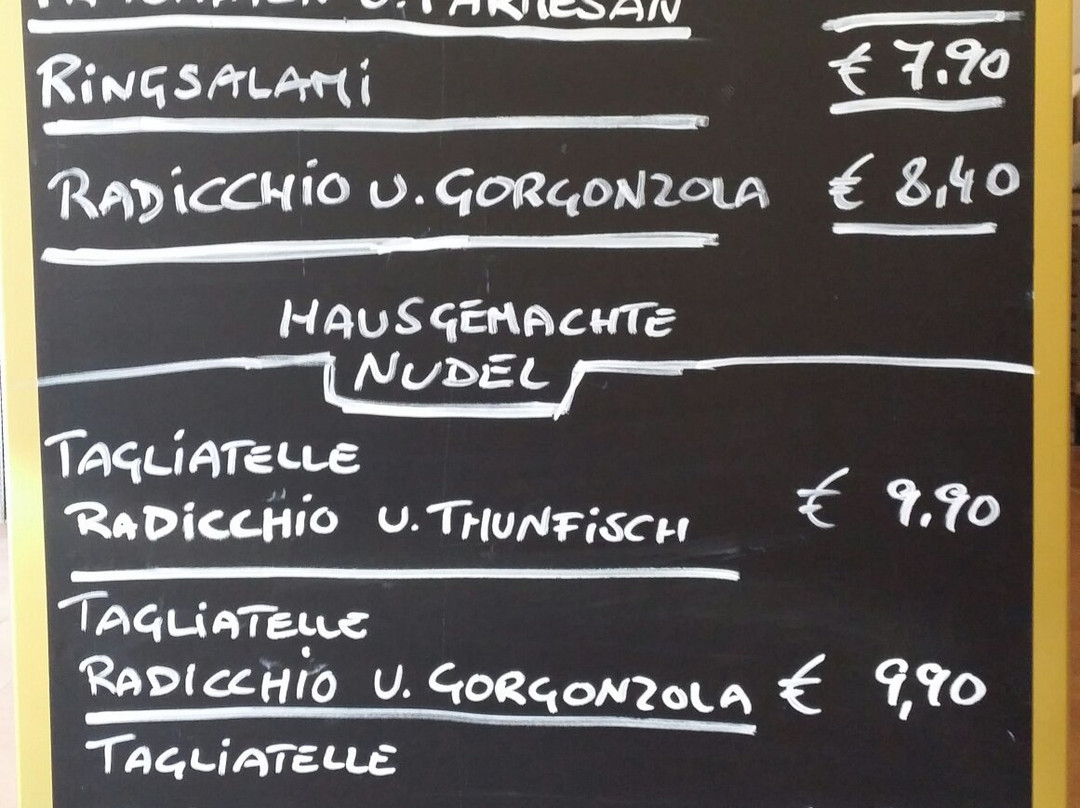 U. PARMESAN
RINGSALAMI € 7.90
RADICCHIO U. GORGONZOLA € 8,40
HAUSGEMACHTE
NUDEL
TAGLIATELLE
RADICCHIO U. THUNFISCH € 9.90
TAGLIATELLE
RADICCHIO U. GORGONZOLA € 9,90
TAGLIATELLE